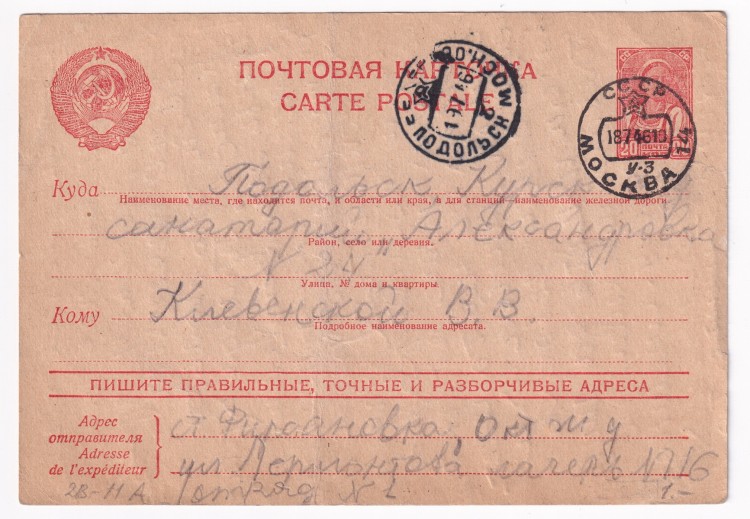 ПОЧТОВАЯ КАРТОЧКА
CARTE POSTALE
ПОДОЛЬСК МОСК. ОБЛ.
СССР
18 7 46 10
У-3
МОСКВА 144
20 ПОЧТА
Куда Подольск Курск
Наименование места, где находится почта, и области или края, а для станций—наименование железной дороги
санатарий „Александровка
Район, село или деревня.
N 24
Улица, № дома и квартиры
Кому Клевенской В. В.
Подробное наименование адресата.
ПИШИТЕ ПРАВИЛЬНЫЕ, ТОЧНЫЕ И РАЗБОРЧИВЫЕ АДРЕСА
Адрес отправителя
Adresse de l'expéditeur
ст Фирсановка, окт ж д
ул Лермонтова лагерь N 16
отряд N 2
28-11 А
1.-